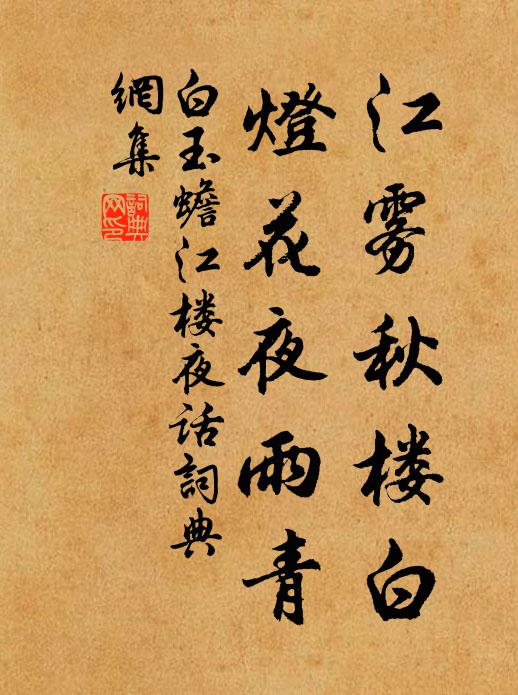 江雾秋楼白
燈花夜雨青
白玉蟾江楼夜话詞典
網集
詞典
网印